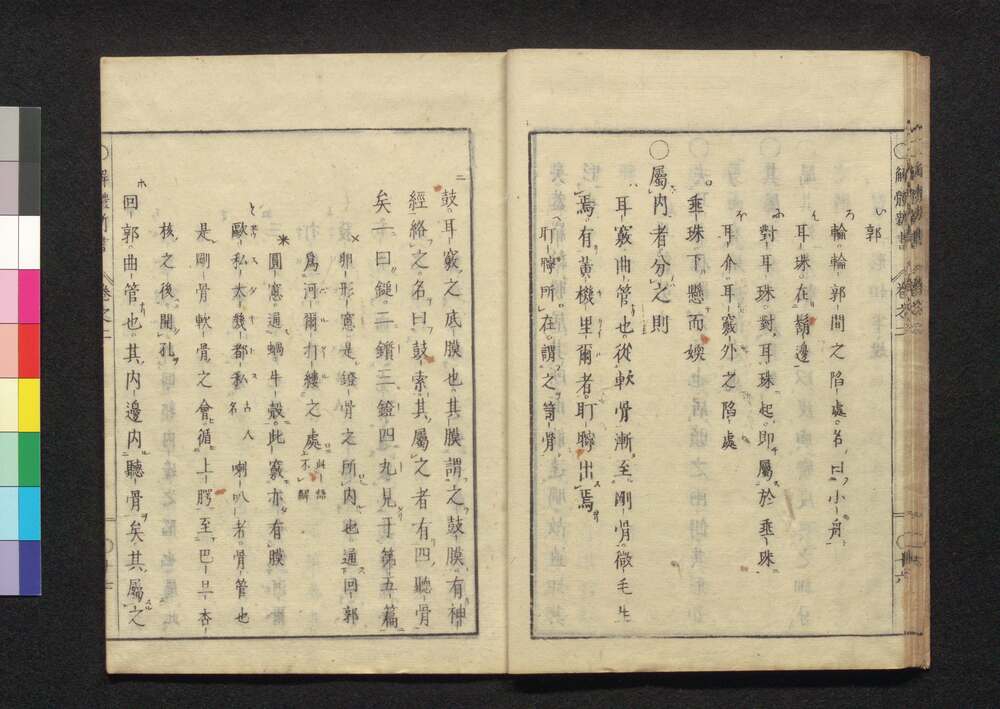 郭
輪輪郭間之陷處名曰小舟
耳珠在鬚邊
對耳珠對耳珠起即屬於垂珠
耳介耳竅外之陷處
垂珠下懸而軟
〇屬内者分之則
耳竅曲管也從軟骨漸至剛骨微毛生
焉有黃機里爾者耵聹出焉
耵聹所在謂之笴骨
解體新書 卷之二 〇十六
鼓耳竅之底膜也其膜謂之鼓膜有神
經絡之名曰鼓索其屬之者有四聽骨
矣一曰鎚二鑽三鐙四九見于第五篇
卵形窓是鐙骨之所内也通回郭
爲河爾打縷之處此語不解
圓窓通蝸牛殼此竅亦有膜
歐私太幾都私人名喇叭者骨管也
是剛骨軟骨之會循上腭至巴旦杏
核之後開孔
回郭曲管也其内邊内聽骨矣其屬之